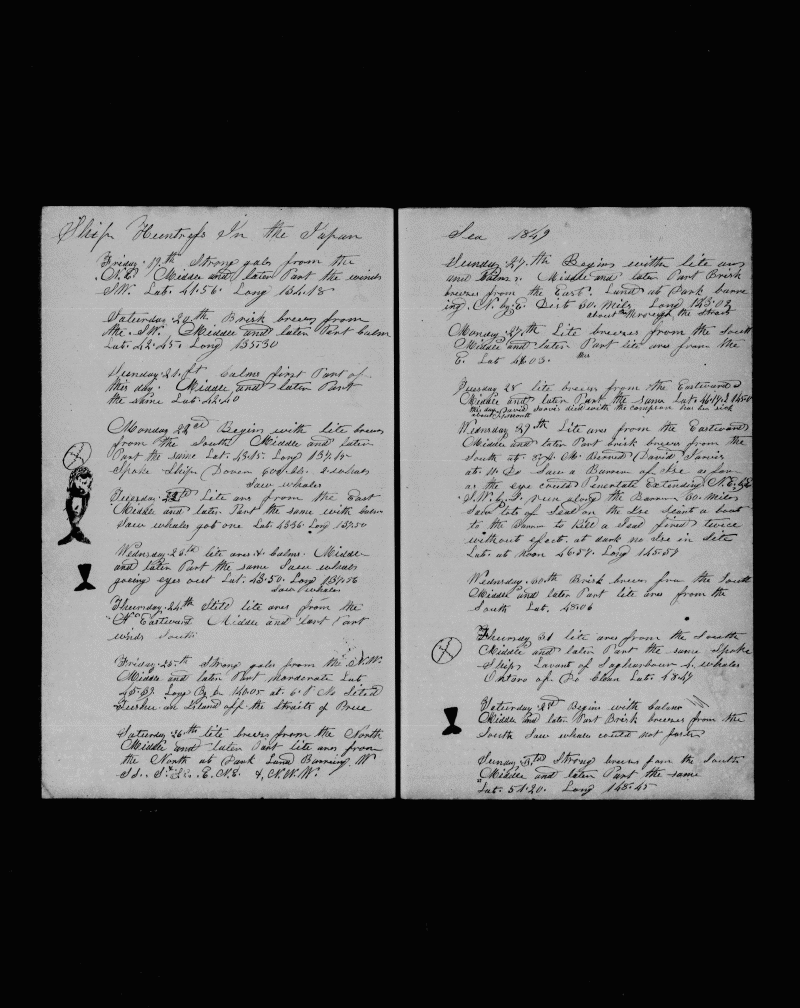 Ship Huntress In the Japan
Friday 19th Strong gals from the
N.E. Middle and later Part the winds
S.W. Lat. 41.56. Long 134.18
Saturday 20th Brisk breezes from
the S.W. Middle and later Part Calm
Lat. 42.45. Long 135.30
Sunday 21.st Calms first Part of
this day. Middle and later Part
the same Lat. 42.40
Monday 22nd Begins with lite breezes
from the South Middle and later
Part the same Lat. 43.15. Long
Spoke Ship Dover 600 bbls.
Saw whales
Tuesday Lite ars from the East
Middle and later Part the same with calm
Saw whales got one Lat. 43.36. Long 137.50
Wednsday 23rd lite ares & Calms. Middle
and later Part the same Saw whales
goeing eyes out Lat. 43.50. Long 137.56
Saw whales
Thursday 24th Still lite ares from the
N Eastward Middle and last Part
winds South
Friday 25th Strong gals from the N.W.
Middle and later Part Lat
45.39. Long By 140.05 at 6 P M
an Island off the Straits of
Saturday 26th lite breezes from the North
Middle and later Part lite ares from
the North at Dark Land Burning W
E.N.E. & N.N.W.
Sea 1849
Sunday 27.th Begins with lite ars
and Calms. Middle and later Part Brisk
breezes from the East. Land at Dark bareing
. N. by E. Dist 30. Mile Long 143.02
about through the strait
Monday 27th Lite breezes from the South
Middle and later Part lite ares from the
E. Lat 46.03.
Tuesday 28 lite breezes from the Eastward
Middle and later Part the same Lat. 46.14
this day David Jarvis died with the has bin sick
about month
Wednsday 29th Lite ares from the Eastward
Middle and later Part brisk breezes from the
South at P.M. Beried David Jarvis
at Do Saw a Barrier of Ise as far
as the eye could Penetrate Extending N.E. &
S.W. by S. run along the Barrier 30. Miles
Saw lots of Seal on the Ise Sent a boat
to the Barrier to Kill a Seal fired twice
without efect. at dark no Ise in Site
Lat. at Noon 46.57. Long 145.57
Wednsday 30th Brisk breezes from the South
Middle and later Part lite ares from the
South Lat. 48.06
Thursday 31 lite ares from the South
Middle and later Part the same Spoke
Ships Levant of Sagharbour 4. whales
Ontaro of Do Clean Lat. 48.47
Saturday 2nd Begins with Calms
Middle and later Part Brisk breezes from the
South Saw whales could not fasten
Sunday 3rd Strong breezes from the South
Middle and later Part the same
Lat. 51.20. Long 148.45